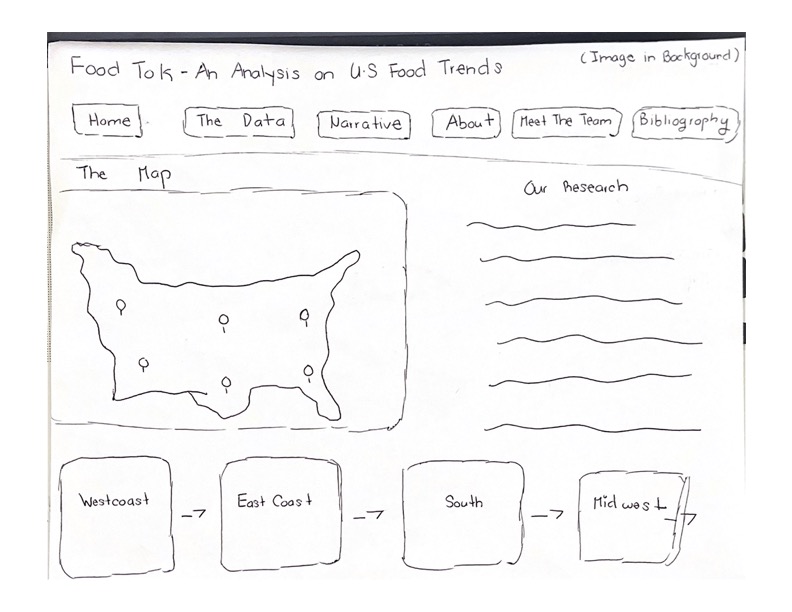 Food Tok - An Analysis on U.S Food Trends
(Image in Background)
Home
The Data
Narrative
About
Meet The Team
Bibliography
The Map
Our Research
Westcoast
East Coast
South
Midwest